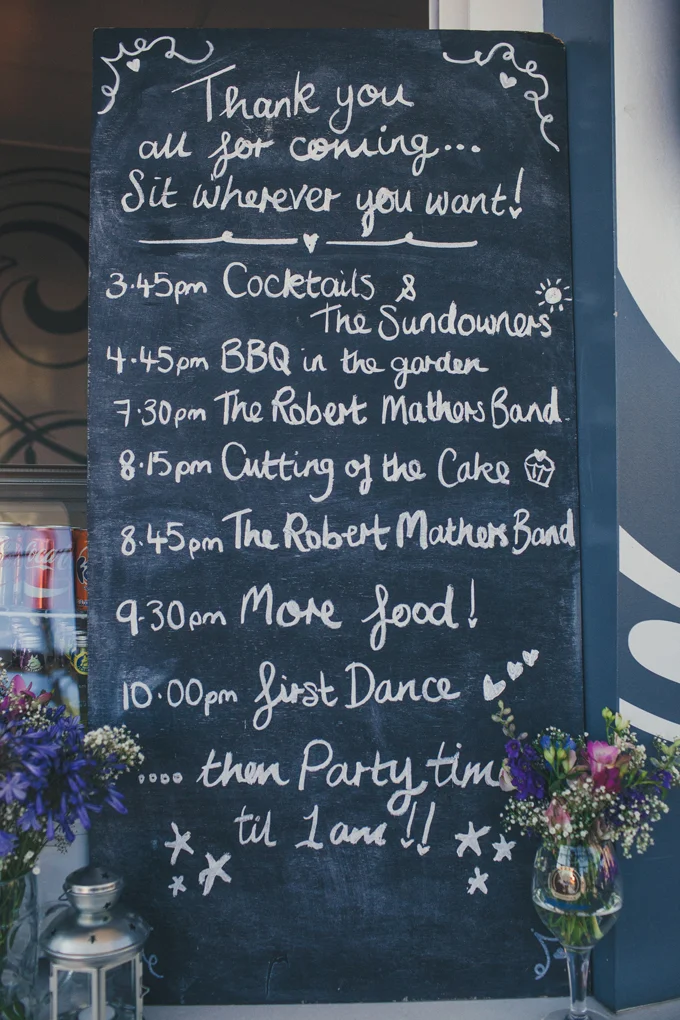 Thank you
all for coming...
Sit wherever you want!
3.45pm Cocktails &
The Sundowners
4.45pm BBQ in the garden
7.30pm The Robert Mathers Band
8.15pm Cutting of the Cake
8.45pm The Robert Mathers Band
9.30pm More food!
10.00pm first Dance
.... then Party time
til 1am!!